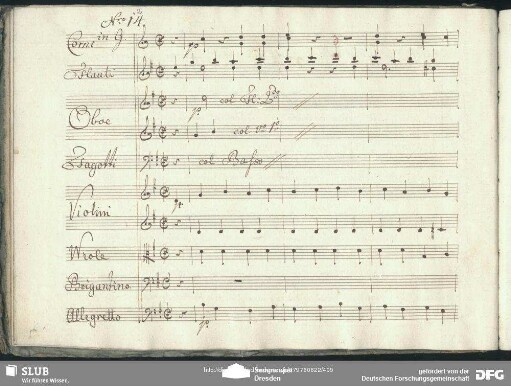 Nro 14.
Corni in G.
Flauti
Oboe
col Fl: 2do
col vno 1o
Fagotti
col Basso
Violini
Wiola
Brigantino
Allegretto
SLUB
Wir führen Wissen.
Dresden
gefördert von der
Deutschen Forschungsgemeinschaft
DFG